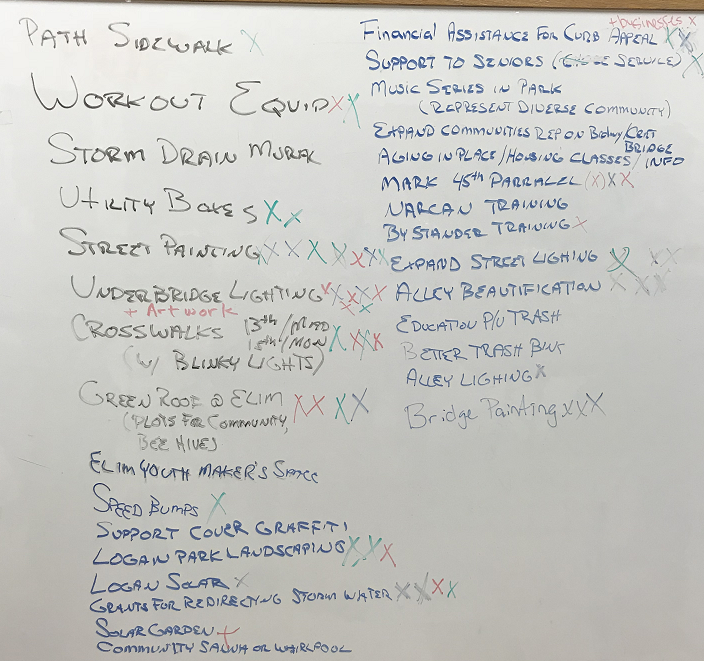 PATH SIDEWALK X
WORKOUT EQUIP X X
STORM DRAIN MURAL
UTILITY BOXES X X
STREET PAINTING X X X X X X X
UNDERBRIDGE LIGHTING X X X X X
+ Artwork X X
CROSSWALKS 13th/
(W/ BLINKY LIGHTS) X X X X
GREEN ROOF @ ELIM X X X X
(PLOTS FOR COMMUNITY,
BEE HIVES)
ELIM YOUTH MAKER'S SPACE
SPEED BUMPS X
SUPPORT COVER GRAFFITI
LOGAN PARK LANDSCAPING X X X
LOGAN SOLAR X
GRANTS FOR REDIRECTING STORM WATER X X X X
SOLAR GARDEN +
COMMUNITY SAUNA OR WHIRLPOOL
+ businesses X
FINANCIAL ASSISTANCE FOR CURB APPEAL X X
SUPPORT TO SENIORS ( SERVICE) X
MUSIC SERIES IN PARK
(REPRESENT DIVERSE COMMUNITY)
EXPAND COMMUNITIES REP ON
BRIDGE
AGING IN PLACE/HOUSING CLASSES/INFO
MARK 45th PARRALEL (X) X X
NARCAN TRAINING
BYSTANDER TRAINING X
EXPAND STREET LIGHING X X X
ALLEY BEAUTIFICATION X X X
EDUCATION P/U TRASH
BETTER TRASH
ALLEY LIGHING X
Bridge Painting X X X